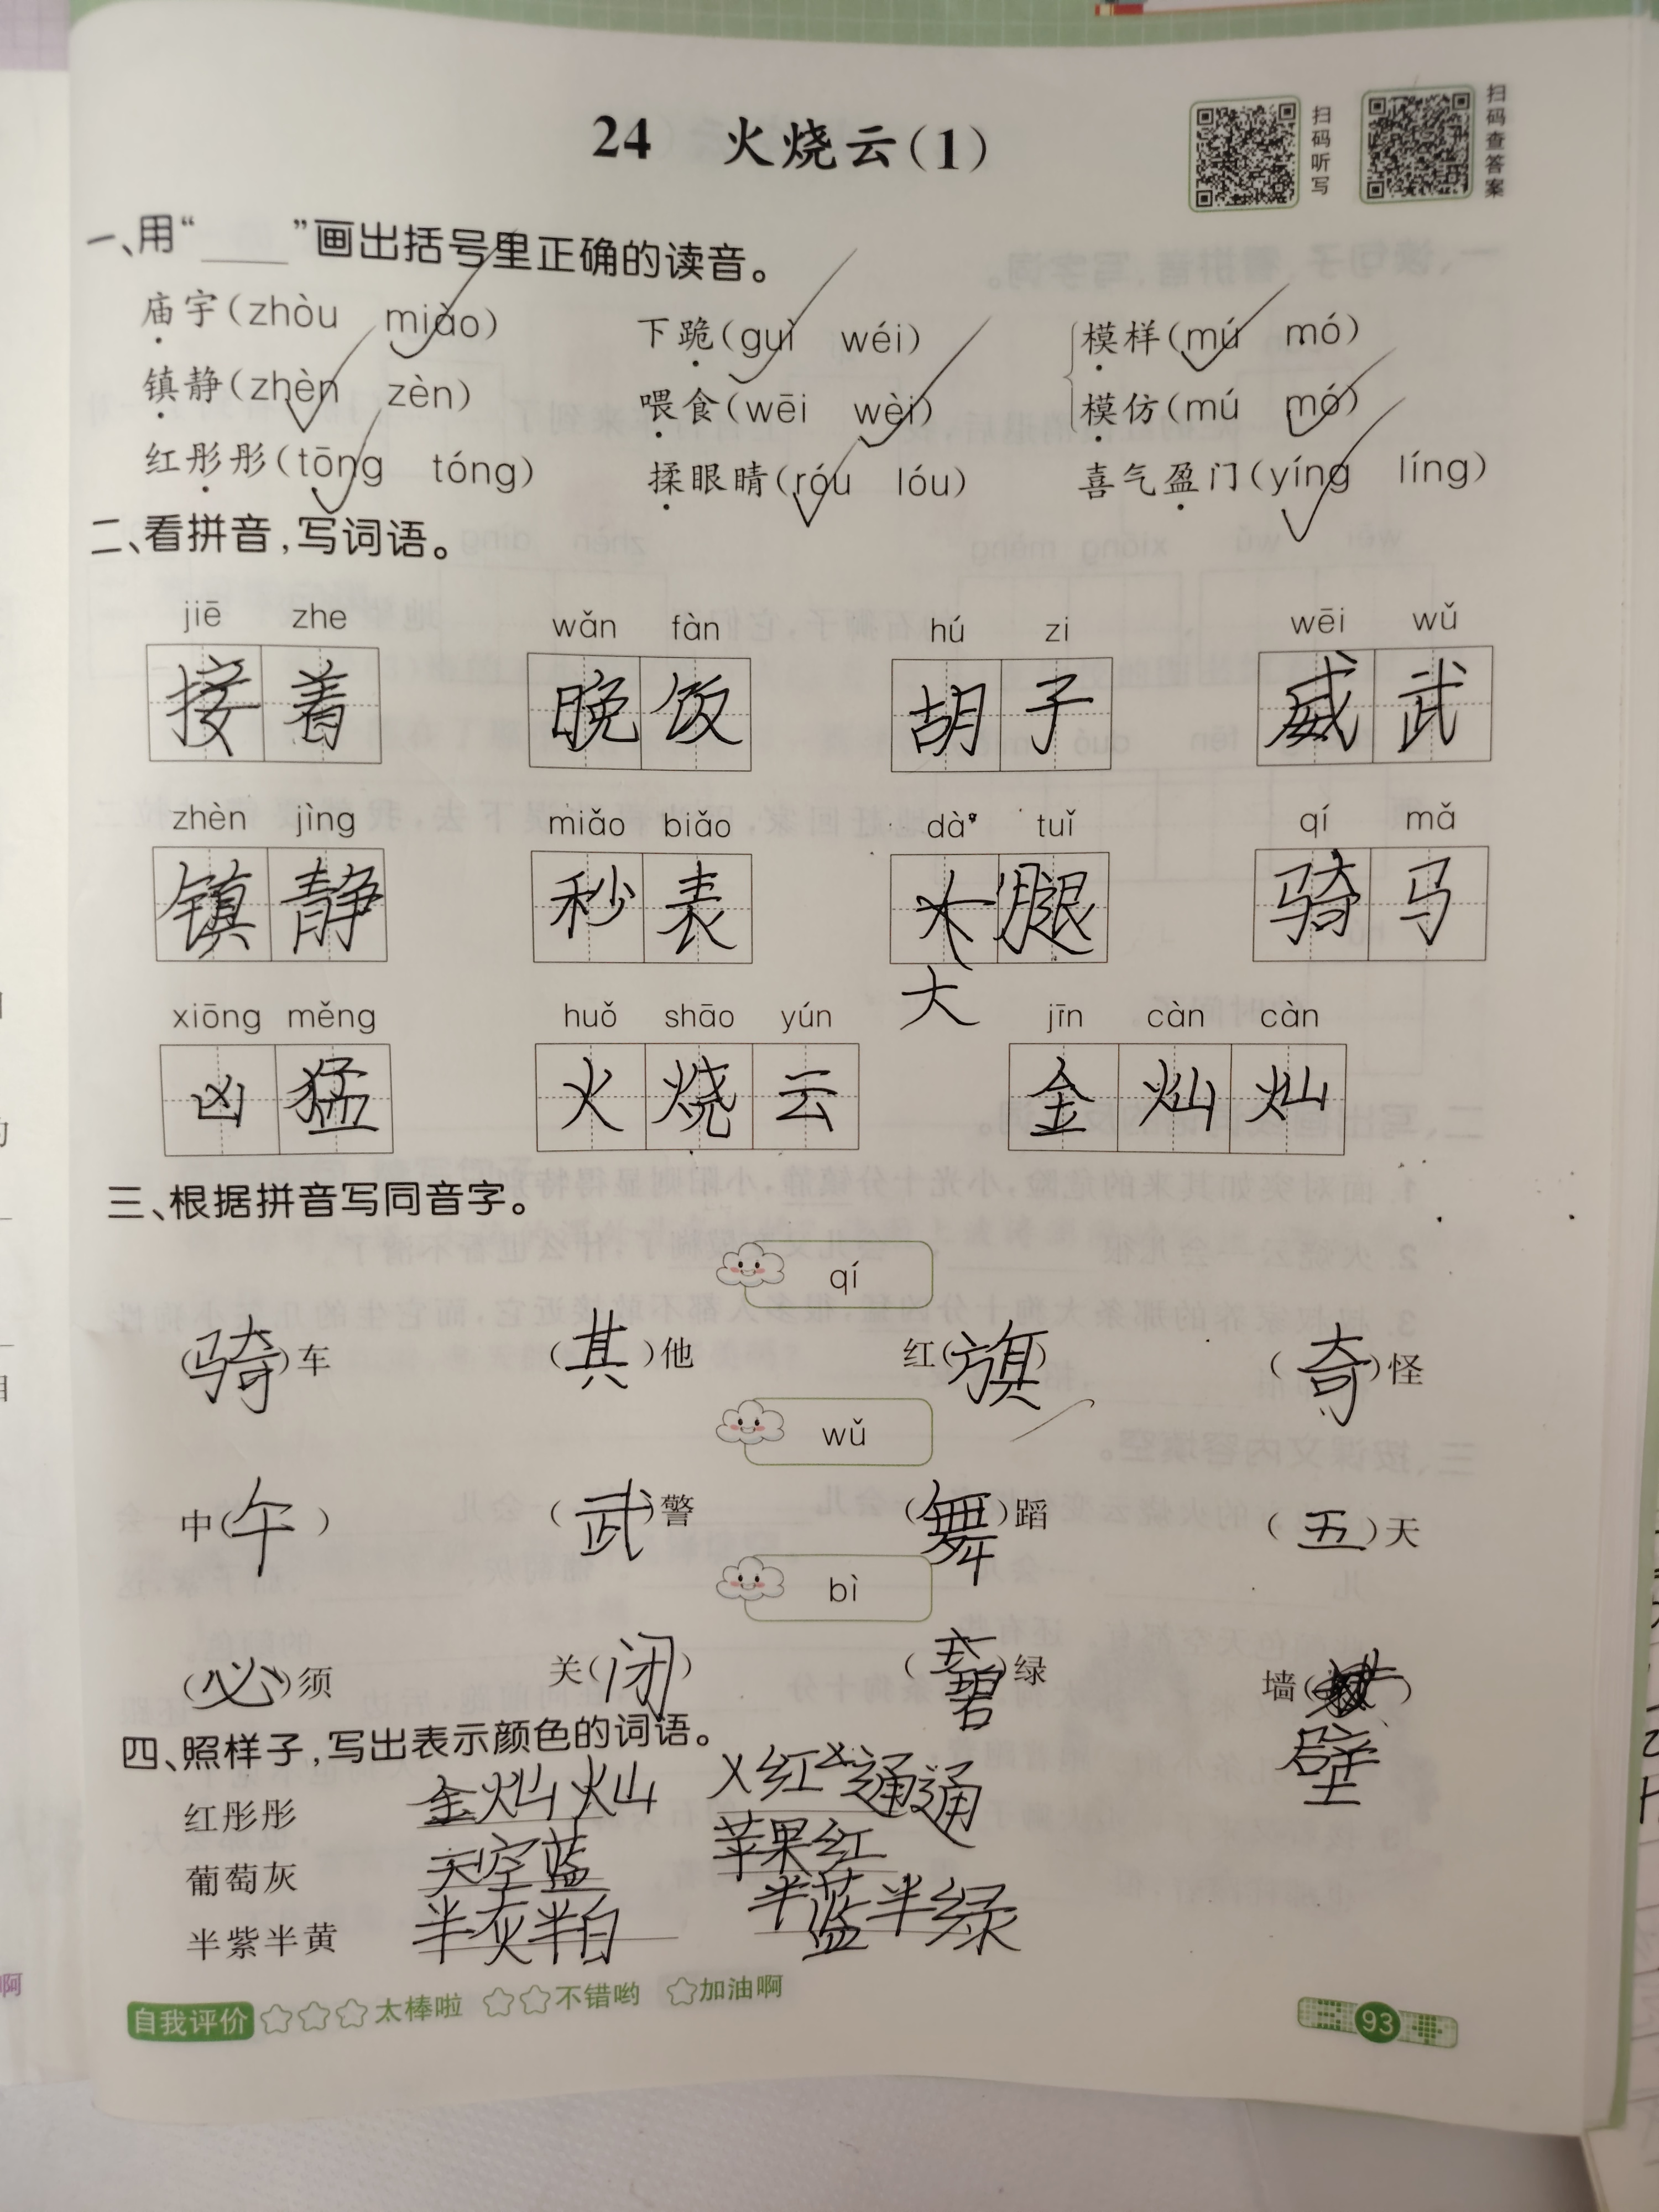 24 火烧云(1)
扫码听写
扫码查答案
一、用“____”画出括号里正确的读音。
庙宇(zhòu miào) 下跪(guì wéi) 模样(mú mó)
镇静(zhèn zèn) 喂食(wēi wèi) 模仿(mú mó)
红彤彤(tōng tóng) 揉眼睛(róu lóu) 喜气盈门(yíng líng)
二、看拼音,写词语。
jiē zhe wǎn fàn hú zi wēi wǔ
接着 晚饭 胡子 威武
zhèn jìng miǎo biǎo dà tuǐ qí mǎ
镇静 秒表 大腿 骑马
大
xiōng měng huǒ shāo yún jīn càn càn
凶猛 火烧云 金灿灿
三、根据拼音写同音字。
qí
(骑)车 (其)他 红(旗) (奇)怪
wǔ
中(午) (武)警 (舞)蹈 (五)天
bì
(必)须 关(闭) (碧)绿 墙( )
壁
四、照样子,写出表示颜色的词语。
红彤彤 金灿灿 红通通
葡萄灰 天空蓝 苹果红
半紫半黄 半灰半白 半蓝半绿
自我评价 太棒啦 不错哟 加油啊
93